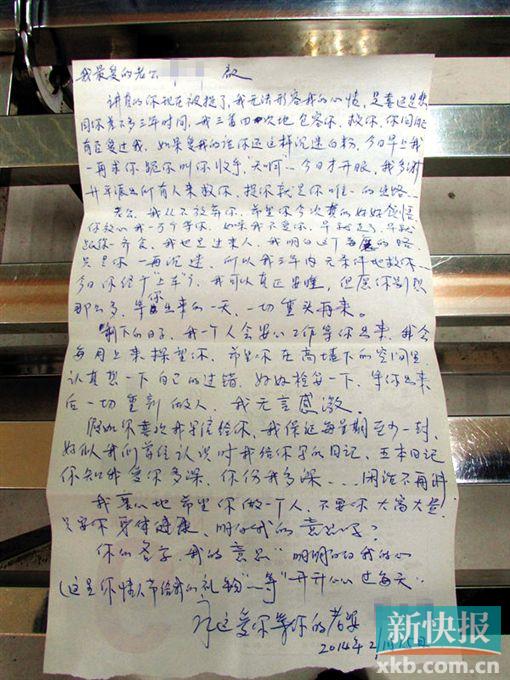 我最爱的老公 启
讲真的你现在被捉了，我无法形容我的心情，是喜还是悲
同你差不多三年时间，我三番四次地包容你、救你，你问问
有否爱过我，如果爱我的话你还这样沉迷白粉，今日早上我
一再求你跪你叫你收手，天啊…今日才开眼，我多谢
所有人来救你，捉你就是你唯一的出路…
老公，我从不放弃你，希望你今次真的好好
你放心我一万个等你，如果我不爱你，早就走了，早就
我也是过来人，我明白这个毒
只是你一再沉迷，所以我三年内无条件地救你…
今日你终于"上车"了，我可以真正安睡，但愿你别想
那么多，等你出来的一天，一切重头再来。
剩下的日子，我一个人会安心工作等你出来，我会
每月上来探望你，希望你在高墙下的空间里
认真想一下自己的过错，好好检讨一下，等你出来
后一切重新做人，我无言感激。
假如你喜欢我写信给你，我保证每星期至少一封，
好似我们前往认识时我给你写的日记，五本日记
你知我爱你多深，你伤我多深……闲话不再讲
我衷心地希望你做一个人，不要你大富大贵
只要你身体健康，明白我的意思吗？
你的名字，我的意思"明明白白我的心
（这是你情人节给我的礼物"…等"开开心心过每天…
永远爱你等你的老婆
2014年2月15日
新快报
xkb.com.cn